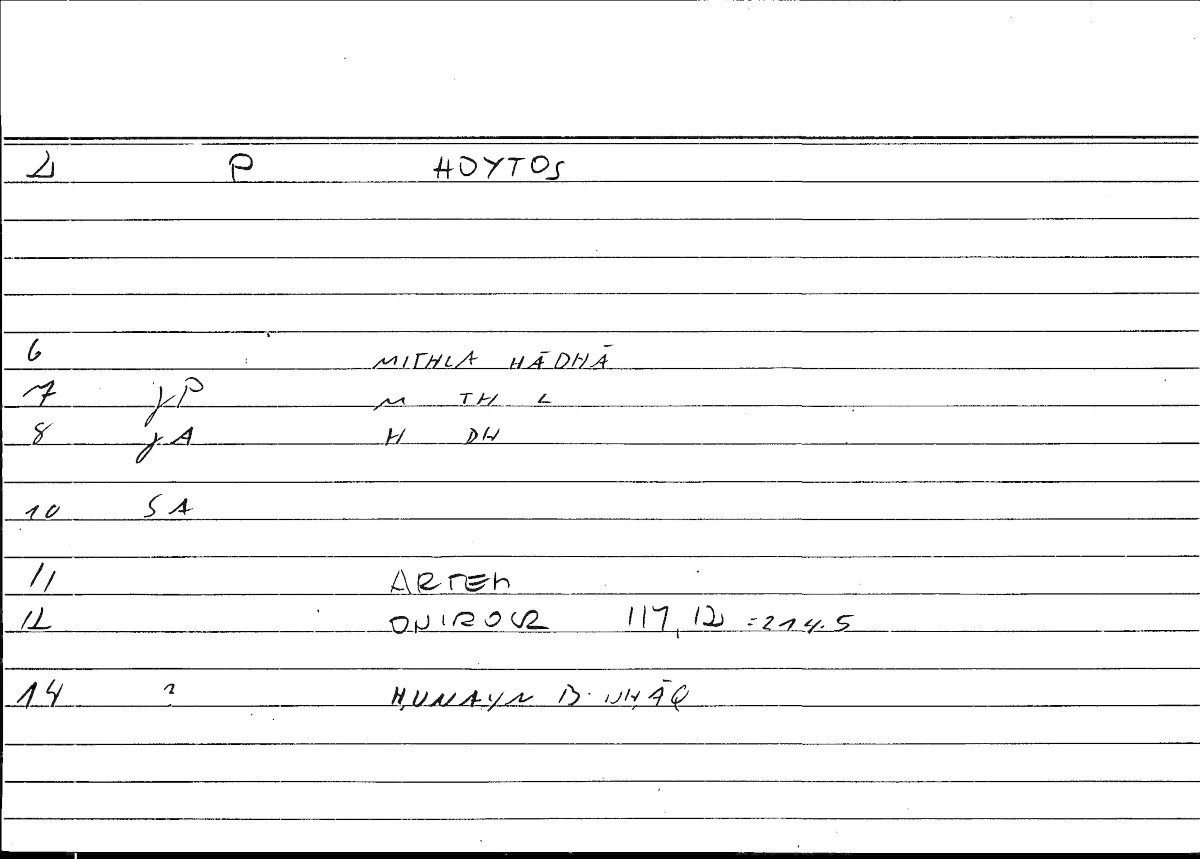 2 P HOYTOS
6 MITHLA HĀDHĀ
7 γP M TH L
8 γA H DH
10 SA
11 ARTEM
12 ONIROCR 117,12 =214.5
14 ? ḤUNAYN B. ISḤĀQ